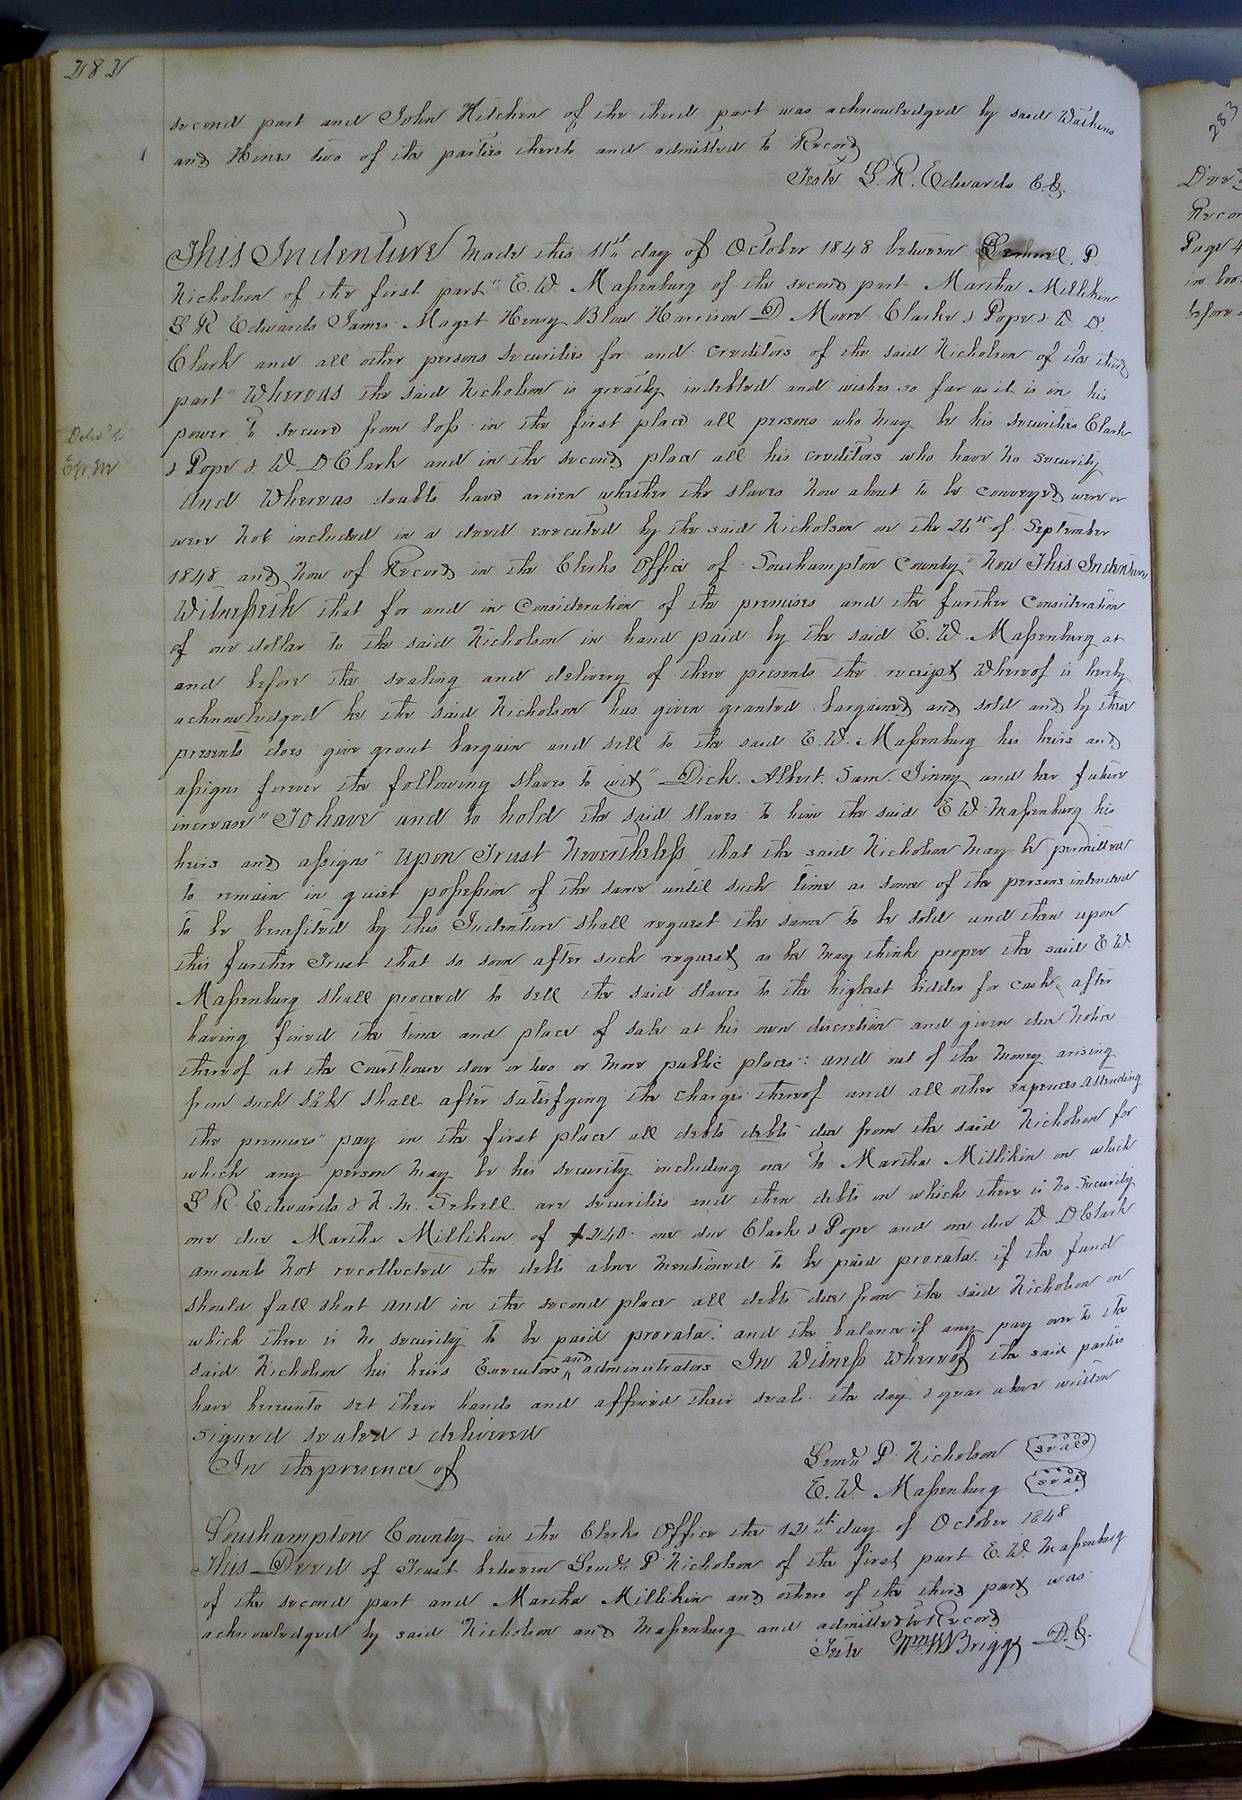 282
second part and John Kitchen of the third part was acknowledged by said Watkins
and Hines two of the parties thereto and admitted to Record
Teste L. R. Edwards C.C.
This Indenture Made this 11th day of October 1848 between P.
Nicholson of the first part" E. W. Maſsenburg of the second part Martha Millikin
L R Edwards James Maget Henry Blow Harrison D Moore Clarke & Pope & W D.
Clark and all other persons securities for and creditors of the said Nicholson of the third
part" Whereas the said Nicholson is greatly indebted and wishes so far as it is in his
power to secure from loſs in the first place all persons who may be his securities Clark
& Pope & W D Clark and in the second place all his creditors who have no security
And Whereas doubts have arisen whether the slaves now about to be conveyed were or
were not included in a deed executed by the said Nicholson on the 26th of September
1848 and now of Record in the Clerks Office of Southampton County" Now This Indenture
Witneſseth that for and in consideration of the premises and the further consideration
of one dollar to the said Nicholson in hand paid by the said E. W. Maſsenburg at
and before the sealing and delivery of these presents the receipt whereof is hereby
acknowledged he the said Nicholson has given granted bargained and sold and by these
presents does give grant bargain and sell to the said E. W. Maſsenburg his heirs and
aſsigns forever the following slaves to wit" Dick. Albert. Sam. Jinny and her future
increase" To have and to hold the said slaves to him the said E W Maſsenburg his
heirs and aſsigns" Upon Trust Nevertheleſs that the said Nicholson may be permitted
to remain in quiet poſseſsion of the same until such time as some of the persons intended
to be benefited by this Indenture shall request the same to be sold and then upon
this further Trust that so soon after such request as he may think proper the said E W.
Maſsenburg shall proceed to sell the said slaves to the highest bidder for cash after
having fixed the time and place of sale at his own discretion and given due notice
thereof at the Courthouse door or two or more public places: and out of the money arising
from such sale shall after satisfying the charges thereof and all other expences attending
the premises" pay in the first place all debts debts due from the said Nicholson for
which any person may be his security including one to Martha Millikin on which
L R Edwards & N. M. Sebrell are securities and then debts on which there is no security
one due Martha Millikin of $240. one due Clark & Pope and one due W D Clark
amounts not recollected the debts above mentioned to be paid prorata. if the fund
should fall short and in the second place all debts due from the said Nicholson on
which there is no security to be paid prorata: and the balance if any pay over to the
said Nicholson his heirs Executors and administrators In Witneſs Whereof the said parties
have hereunto set their hands and affixed their seals the day & year above written
Signed sealed & delivered
In the presence of
P. Nicholson seal
E. W. Maſsenburg seal
Southampton County in the Clerks Office the 12th day of October 1848
This Deed of Trust between P. Nicholson of the first part E. W. Maſsenburg
of the second part and Martha Millikin and others of the third part was
acknowledged by said Nicholson and Maſsenburg and admitted to Record
Teste Wm W Briggs D.C.
Deliv'd to
E W M
283
Page 4